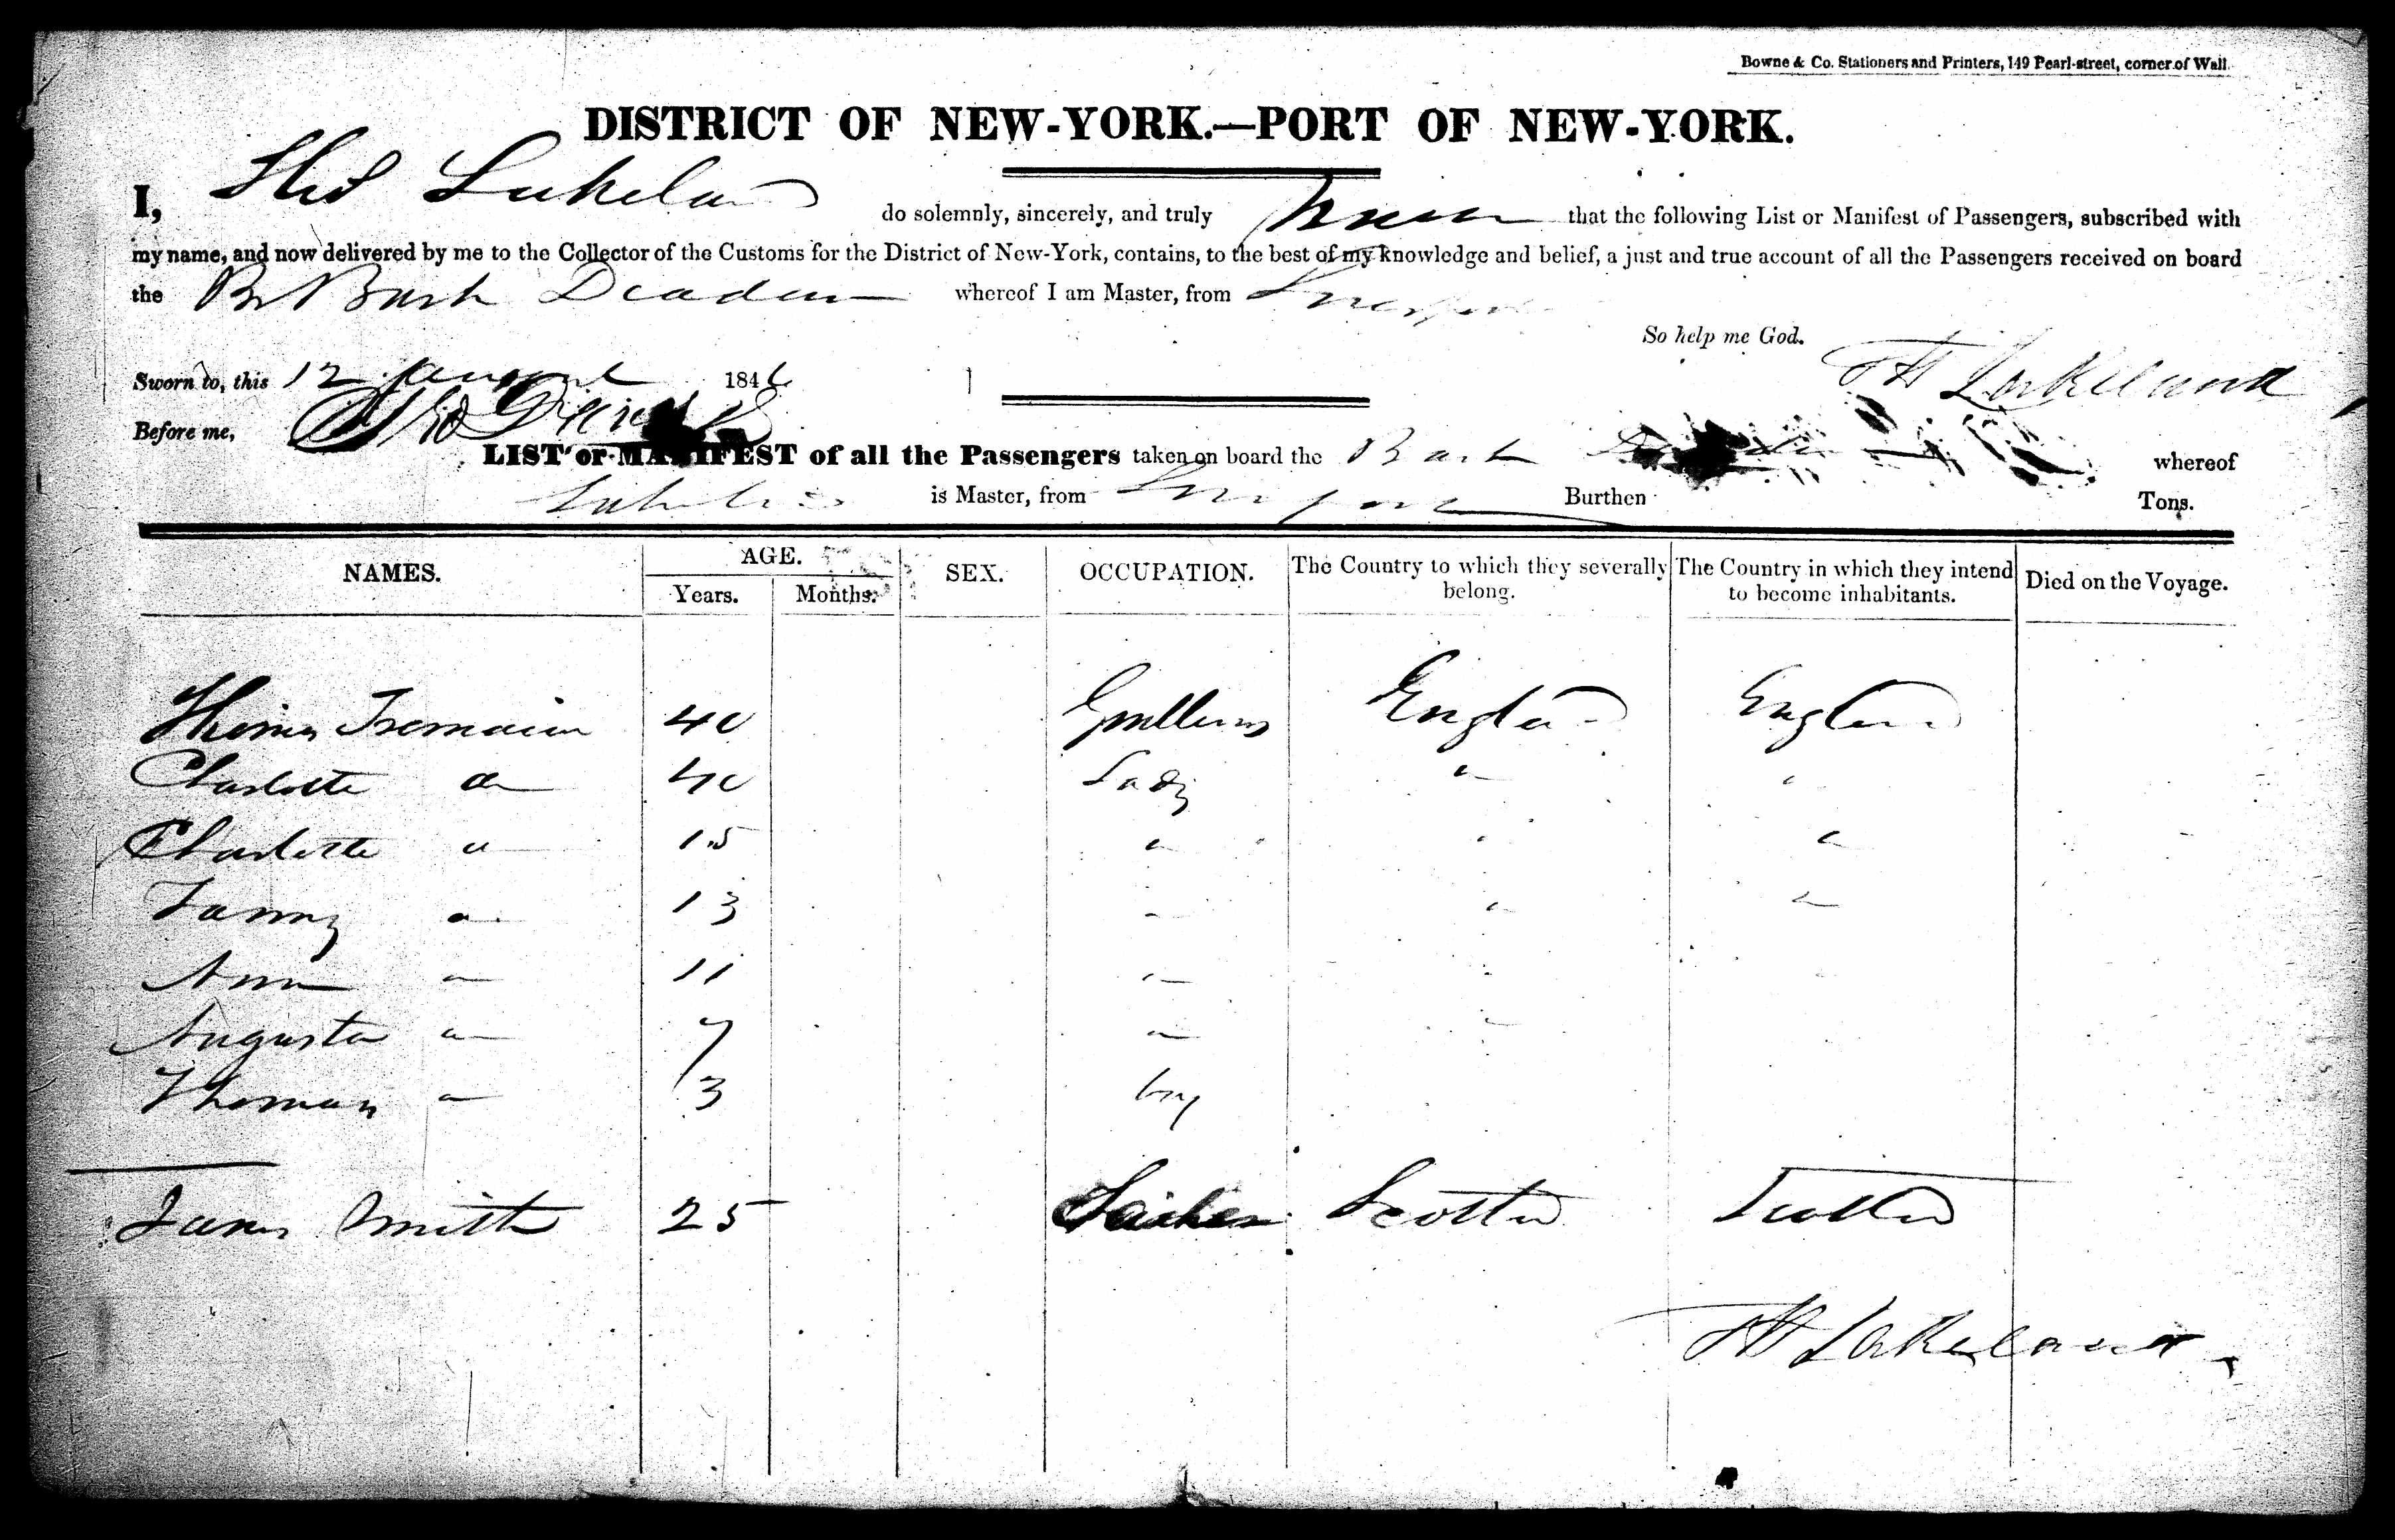 Bowne & Co. Stationers and Printers, 149 Pearl-street, corner of Wall.
DISTRICT OF NEW-YORK.—PORT OF NEW-YORK.
I, Lakeland do solemnly, sincerely, and truly swear that the following List or Manifest of Passengers, subscribed with
my name, and now delivered by me to the Collector of the Customs for the District of New-York, contains, to the best of my knowledge and belief, a just and true account of all the Passengers received on board
the Br Bark whereof I am Master, from Liverpool
So help me God.
Sworn to, this 12 august 1846 Lakeland
Before me,
LIST or MANIFEST of all the Passengers taken on board the Bark whereof
Lakeland is Master, from Liverpool Burthen Tons.
NAMES. AGE. SEX. OCCUPATION. The Country to which they severally belong. The Country in which they intend to become inhabitants. Died on the Voyage.
Years. Months.
Thomas Tremaine 40 England England
Charlotte do 40 Lady " "
Charlotte " 15 " " "
Fanny " 13 " " "
Ann " 11 " " "
Augusta " 7 " "
Thomas " 3 boy
James Smith 25 Scotld Scotld
Lakeland